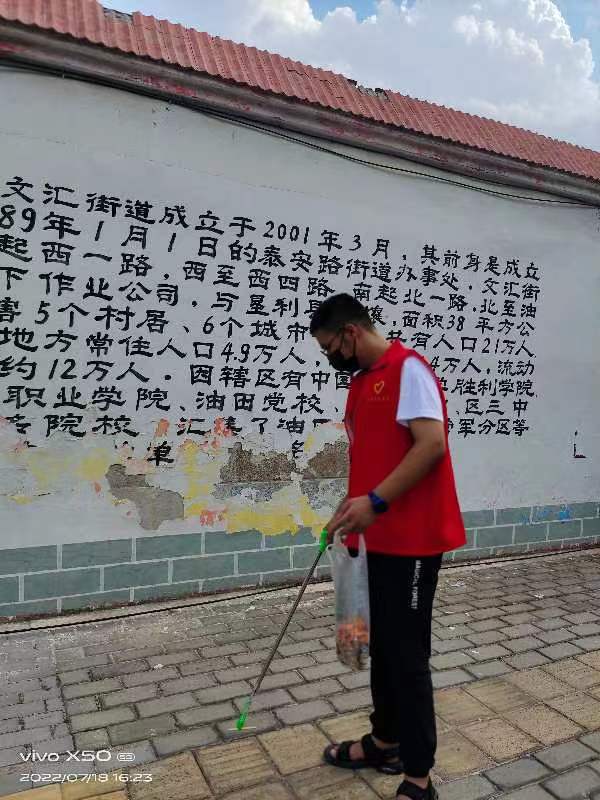 文汇街道成立于2001年3月，其前身是成立
89年1月1日的泰安路街道办事处，文汇街
起西一路，西至西四路，南起北一路，北至油
下作业公司，与垦利县
害5个村居、6个城市 有人口21万人，
地方常住人口4.9万人， 4万人，流动
约12万人．因辖区有中国 胜利学院、
职业学院、油田党校、 、区三中
专院校，汇集了油田 军分区等
单
BASICAL FOREST
vivo X50 5G
2022/07/18 16:23